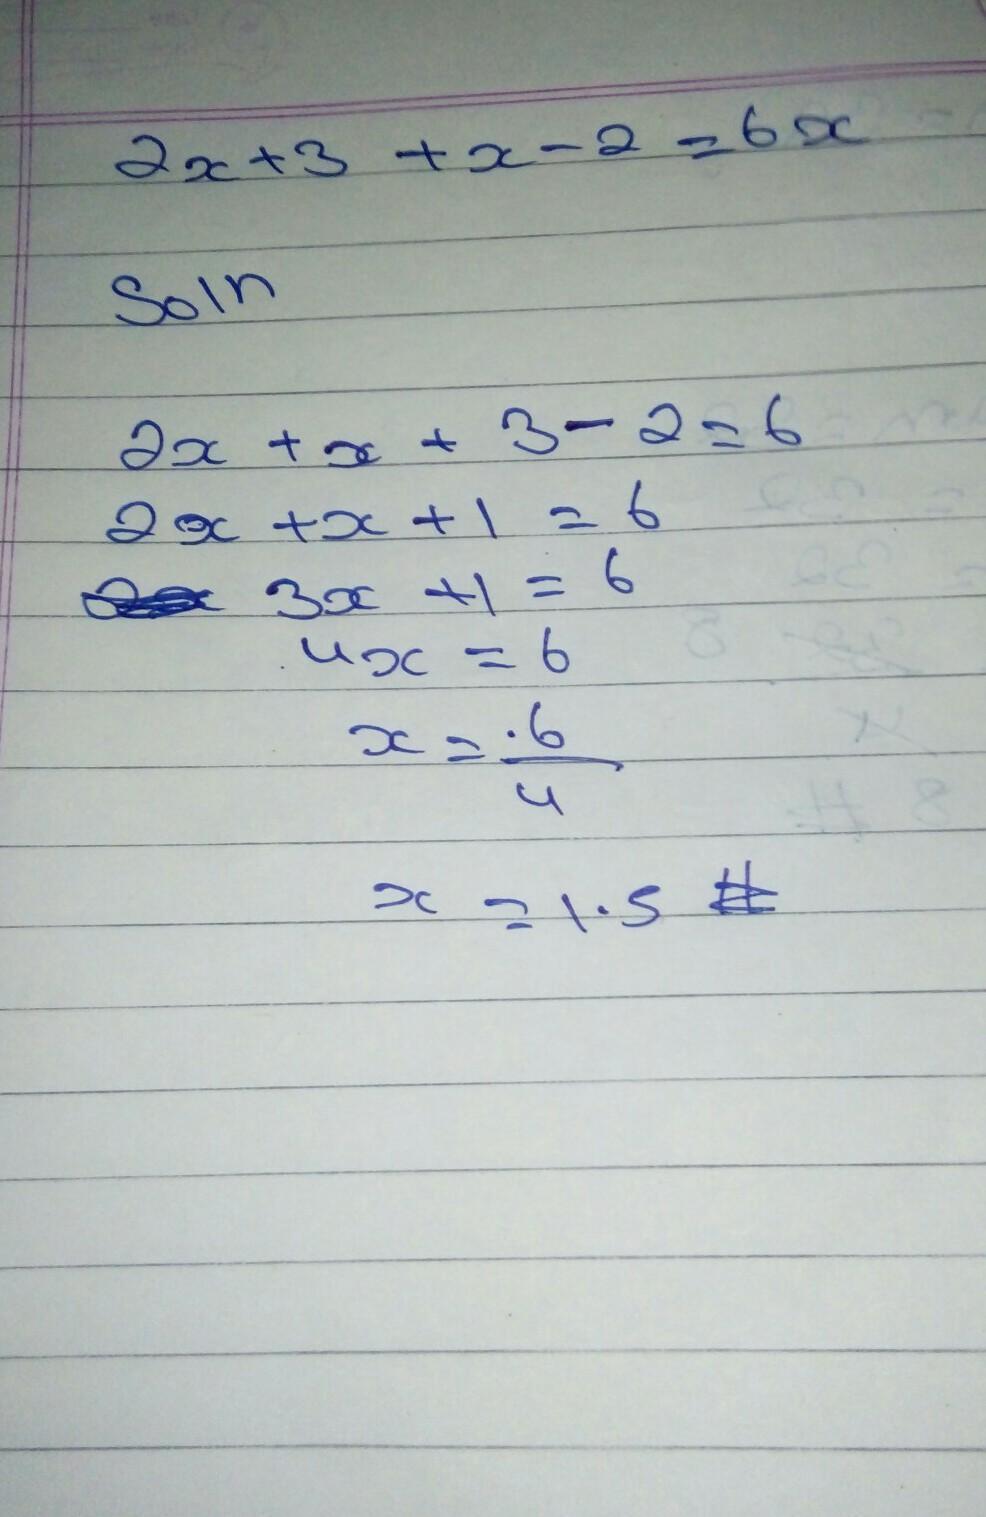 2x+3 +x-2=6x
Soln
2x +x + 3-2=6
2x +x+1 = 6
3x +1 = 6
4x = 6
x = .6
4
x =1.5 #